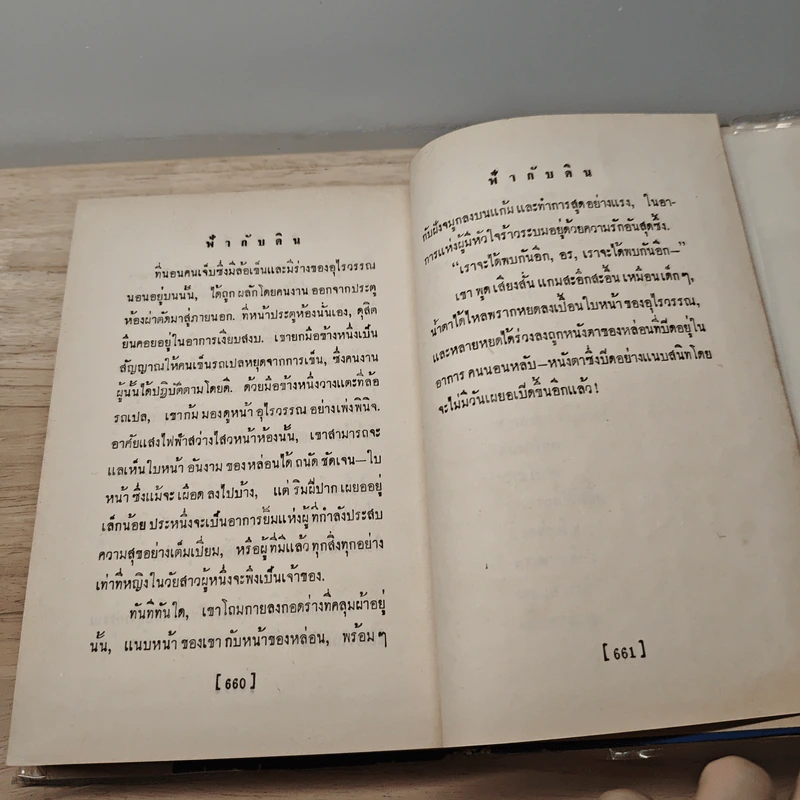 ฟ้ากับดิน
ที่นอนคนเจ็บซึ่งมีล้อเข็นและมีร่างของอุไรวรรณ
นอนอยู่บนนั้น, ได้ถูก ผลักโดยคนงาน ออกจากประตู
ห้องผ่าตัดมาสู่ภายนอก. ที่หน้าประตูห้องนั้นเอง, ดุสิต
ยืนคอยอยู่ในอาการเงียบสงบ. เขายกมือข้างหนึ่งเป็น
สัญญาณให้คนเข็นรถเปลหยุดจากการเข็น, ซึ่งคนงาน
ผู้นั้นได้ปฏิบัติตามโดยดี. ด้วยมือข้างหนึ่งวางแตะที่ล้อ
รถเปล, เขาก้ม มองดูหน้า อุไรวรรณ อย่างเพ่งพินิจ.
อาศัยแสงไฟฟ้าสว่างไสวหน้าห้องนั้น, เขาสามารถจะ
แลเห็นใบหน้า อันงาม ของหล่อนได้ ถนัด ชัดเจน—ใบ
หน้า ซึ่งแม้จะ เผือด ลงไปบ้าง, แต่ ริมฝีปาก เผยออยู่
เล็กน้อย ประหนึ่งจะเป็นอาการยิ้มแห่งผู้ ที่กำลังประสบ
ความสุขอย่างเต็มเปี่ยม, หรือผู้ ที่มีแล้ว ทุกสิ่งทุกอย่าง
เท่าที่หญิง ในวัยสาวผู้หนึ่งจะพึงเป็นเจ้าของ.
ทันทีทันใด, เขาโถมกายลงกอดร่างที่คลุมผ้าอยู่
นั้น, แนบหน้า ของเขา กับหน้าของหล่อน, พร้อม ๆ
[ 660 ]
ฟ้ากับดิน
กับฝังจมูกลงบนแก้ม และทำการสูดอย่างแรง, ในอา-
การแห่งผู้มีหัวใจร้าวระบมอยู่ด้วยความรักอันสุดซึ้ง.
“เราจะได้พบกันอีก, อร, เราจะได้พบกันอีก—”
เขา พูด เสียงสั่น แกมสะอึกสะอื้น เหมือนเด็ก ๆ,
น้ำตาได้ไหลพรากหยดลงเปื้อน ใบหน้า ของอุไรวรรณ,
และหลายหยดได้ร่วงลงถูกหนังตาของหล่อนที่ปิดอยู่ใน
อาการ คนนอนหลับ—หนังตาซึ่งปิดอย่างแนบสนิทโดย
จะไม่มีวันเผยอเปิดขึ้นอีกแล้ว !
[ 661 ]